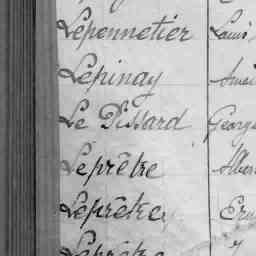 Lepennetier Louis
Lepinay Amé
Le Pissard George
Leprêtre Alber
Leprêtre Ern
Leprêtre